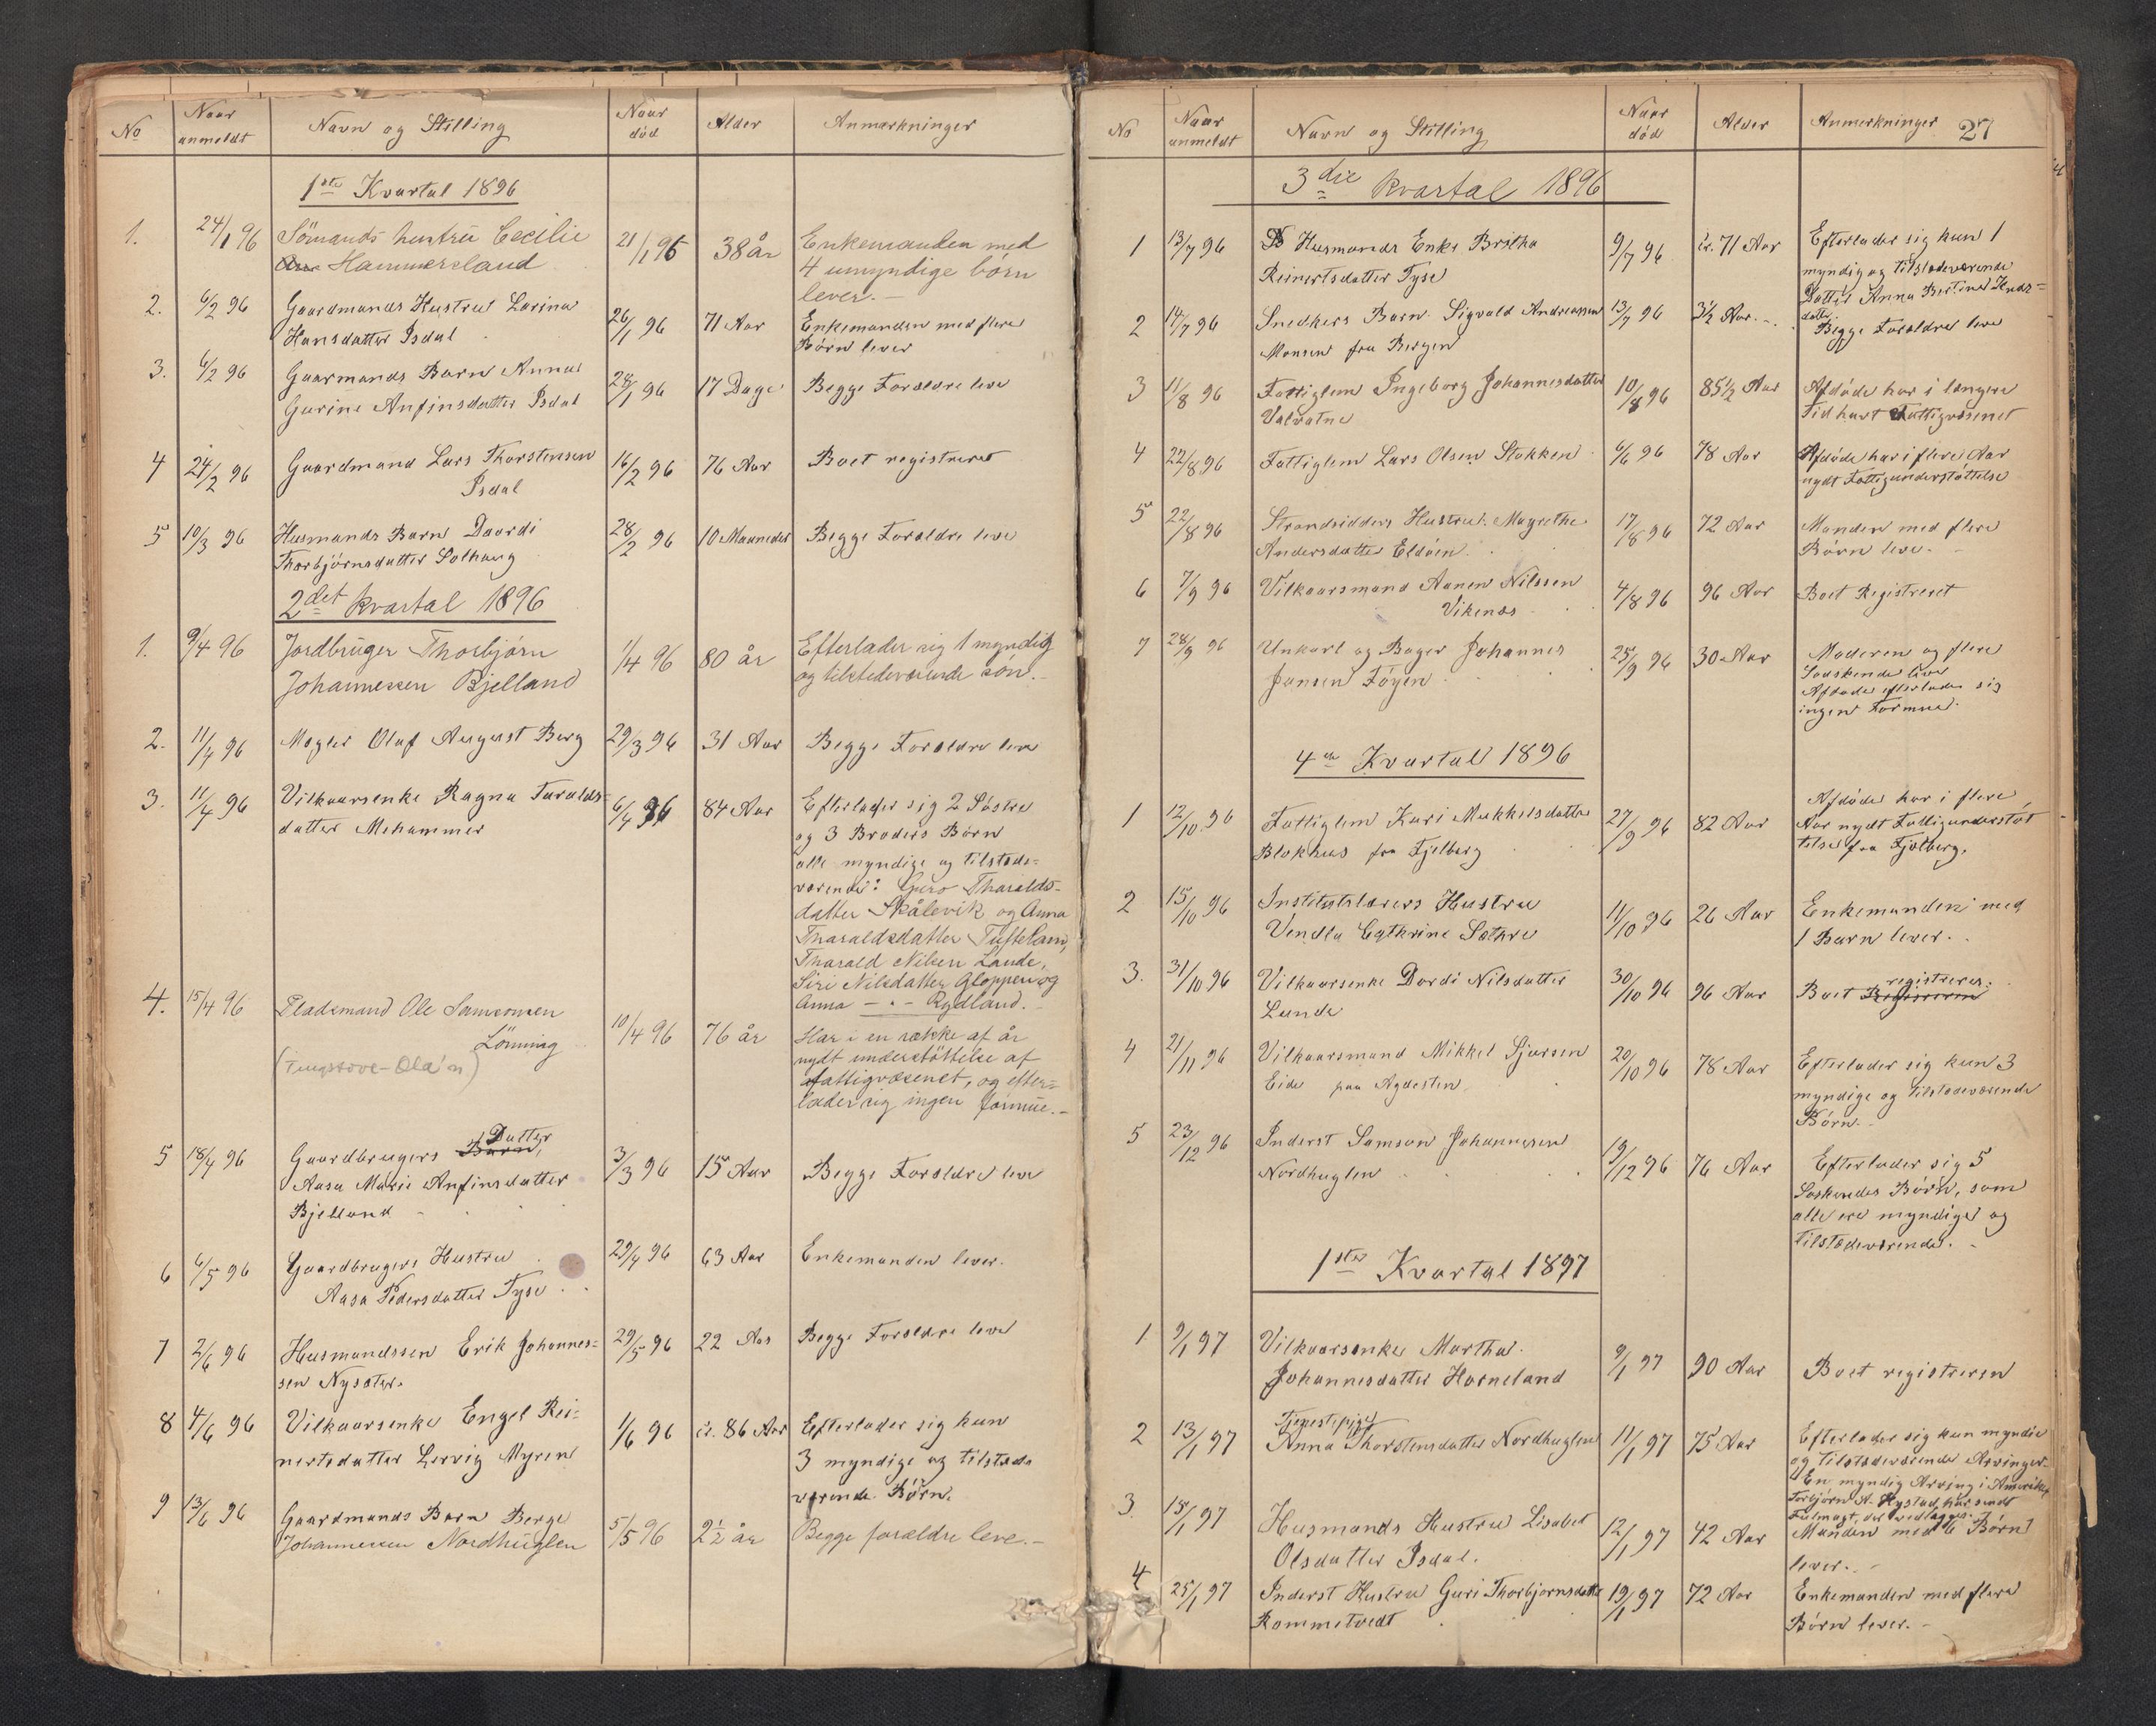 No
Naar
anmeldt
Navn og Stilling
Naar
död
Alder
Anmærkninger
1ste Kvartal 1896
1.
24/1 96
Sömands hustru Cecilie
Hammersland
21/1 96
38 år
Enkemanden med
4 umyndige börn
lever.—
2.
6/2 96
Gaardmands Hustru Larina
Hansdatter Isdal
26/1 96
71 Aar
Enkemanden med flere
Börn lever
3.
6/2 96
Gaarmands Barn Anna
Gurine Anfinsdatter Isdal
28/1 96
17 Dage
Begge Forældre leve
4
24/2 96
Gaardmand Lars Thorstensen
Isdal
16/2 96
76 Aar
Boet registreret
5
10/3 96
Husmands Barn Daardi
Thorbjörnsdatter Solhaug
28/2 96
10 Maaneder
Begge Foraldre leve
2det kvartal 1896
1.
9/4 96
Jordbruger Thorbjörn
Johannessen Bjelland
1/4 96
80 år
Efterlader sig 1 myndig
og tilstedeværende sön.—
2.
11/4 96
Mægler Oluf August Berg
29/3 96
31 Aar
Begge Foraldre leve
3.
11/4 96
Vilkaarsenke Ragna Taralds-
datter Mehammer
6/4 96
84 Aar
Efterlader sig 2 Söstre
og 3 Broders Börn
alle myndige og tilstede-
værende: Guro Tharalds-
datter Skålevik og Anna
Tharaldsdatter Tufteland,
Tharald Nilsen Lande,
Siri Nilsdatter Gloppen og
Anna — " — Rydland.—
4.
15/4 96
Pladsmand Ole Samsonsen
Lönning
(Tingstove-Ola'n)
10/4 96
76 år
Har i en række af år
nydt understöttelse af
fattigvæsenet, og efter-
lader sig ingen formue.—
5
18/4 96
Gaardbrugers Barn, Datter
Aasa Marie Anfinsdatter
Bjelland
3/3 96
15 Aar
Begge Foraldre leve
6
6/5 96
Gaardbrugers Hustru
Aasa Pedersdatter Tyse
29/4 96
63 Aar
Enkemanden lever.
7
2/6 96
Husmandssen Erik Johannes-
sen Nysæter.
29/5 96
22 Aar
Begge Foraldre leve
8
4/6 96
Vilkaarsenke Engel Rei-
nertsdatter Lervig Myren
1/6 96
ca. 86 Aar
Efterlader sig kun
3 myndige og tilstede
værende Börn.
9
13/6 96
Gaardmands Barn Berge
Johannessen Nordhuglen
5/5 96
2½ år
Begge forældre leve.—
No
Naar
anmeldt
Navn og Stilling
Naar
död
Alder
Anmerkninger
27
3die kvartal 1896
1
13/7 96
Husmands Enke Britha
Reinertsdatter Tyse
9/7 96
ca. 71 Aar
Efterlader sig kun 1
myndig og tilstedeværende
Datter Anna Bertine
datter
2
14/7 96
Snedkers Barn Sigvald Andreassen
Monsen fra Bergen
13/7 96
3½ Aar.
Begge Foraldre leve
3
11/8 96
Fattiglem Ingeborg Johannesdatter
Valvatne
10/8 96
85½ Aar
Afdöde har i længere
Tid havt Fattigvæsenet
4
22/8 96
Fattiglem Lars Olsen Stokken
6/6 96
78 Aar
Afdöde har i flere Aar
nydt Fattigunderstöttelse
5
22/8 96
Strandsidders Hustru Magrethe
Andersdatter Eldöen
17/8 96
72 Aar
Manden med flere
Börn leve.
6
7/9 96
Vilkaarsmand Aanen Nilssen
Vikenæs
4/8 96
96 Aar
Boet Registreret
7
28/9 96
Unkarl og Bager Johannes
Jansen Töyen
25/9 96
30 Aar
Moderen og flere
Sødskende leve
Afdøde efterlader sig
ingen Formue.
4de Kvartal 1896
1
12/10 96
Fattiglem Kari Mikkelsdatter
Blokhus fra Fjelberg
27/9 96
82 Aar
Afdöde har i flere
Aar nydt Fattigunderstöt
telse fra Fjelberg.
2
15/10 96
Institutslærers Hustru
Vendla Cathrine Sæthre
11/10 96
26 Aar
Enkemanden med
1 Barn lever.
3.
31/10 96
Vilkaarsenke Dordi Nilsdatter
Lunde
30/10 96
96 Aar
Boet registreres.
4
21/11 96
Vilkaarsmand Mikkel Sjursen
Eide paa Agdesten
20/10 96
78 Aar
Efterlader sig kun 3
myndige og tilstedeværende
Börn.
5
23/12 96
Inderst Samson Johannesen
Nordhuglen
19/12 96
76 Aar
Efterlader sig 5
Søskendes Börn, som
alle ere myndige og
tilstedeværende.
1ste Kvartal 1897
1
9/1 97
Vilkaarsenke Martha
Johannesdatter Horneland
9/1 97
90 Aar
Boet registreren
2
13/1 97
Tjenestepige
Anna Thorstensdatter Nordhuglen
11/1 97
75 Aar
Efterlader sig kun myndie
og tilstedeværende Arvinger
En myndig Arving i Amerika
Torbjörn A. Nystad, har sendt
Fulmagt, der vedlægges.
3.
15/1 97
Husmands Hustru Lisabet
Olsdatter Isdal.
12/1 97
42 Aar
Manden med 6 Börn
lever.
4
25/1 97
Inderst Hustru Guri Thorbjornsdatter
Rommetvedt
19/1 97
72 Aar
Enkemanden med flere
Börn lever.—